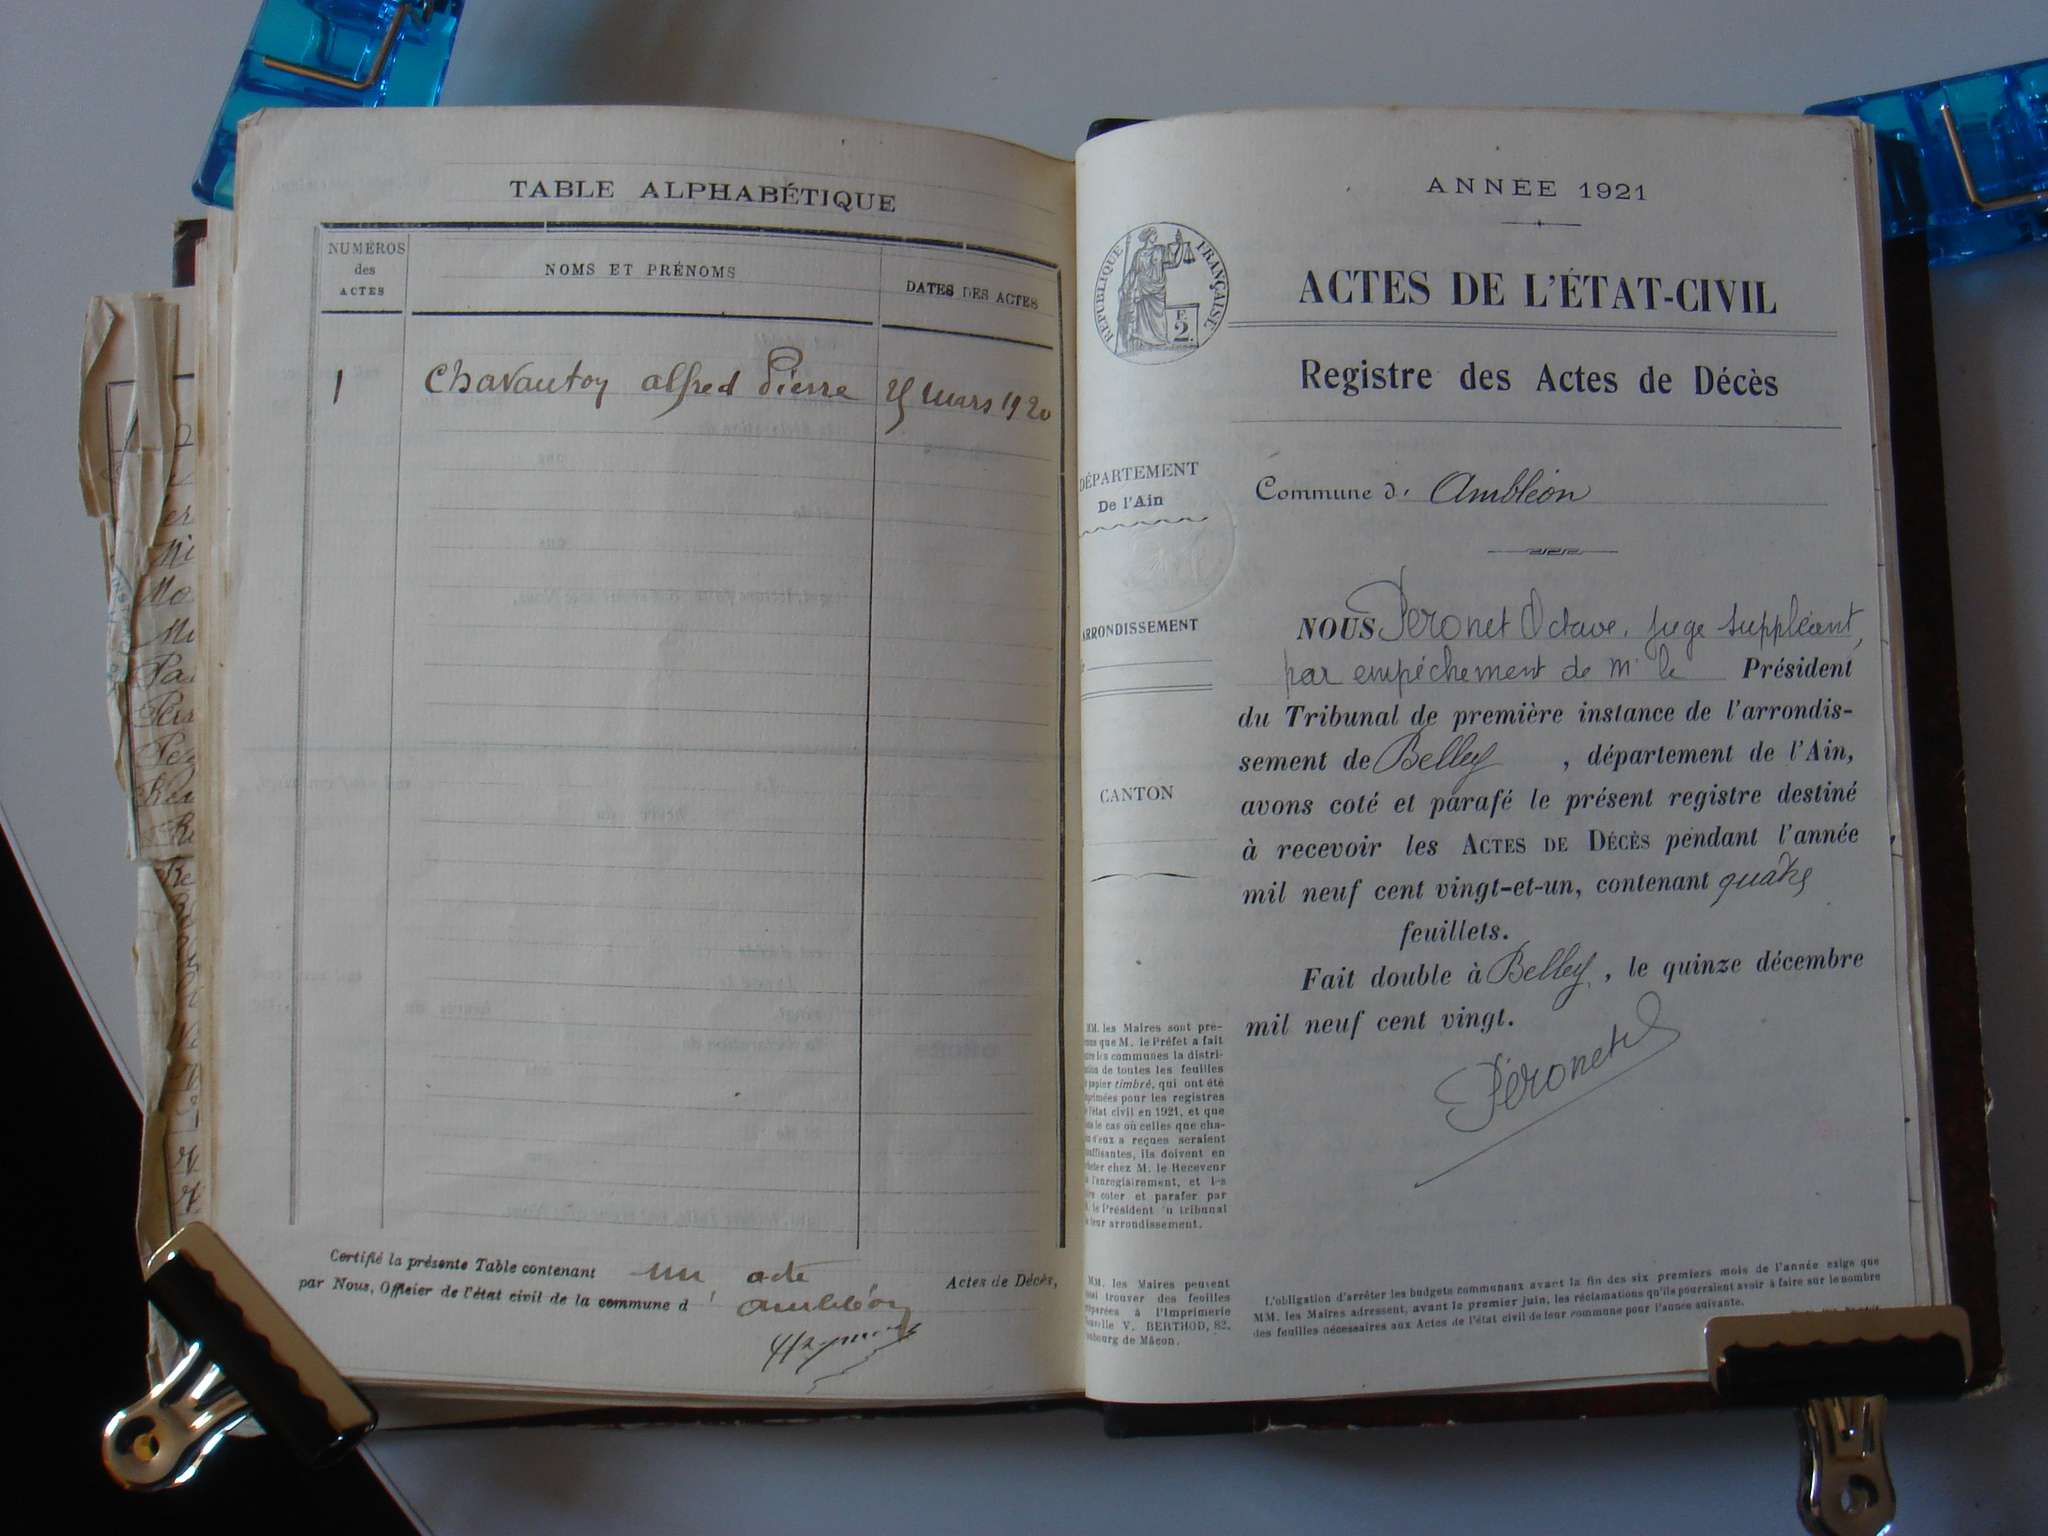 TABLE ALPHABÉTIQUE
NUMÉROS
des
ACTES
NOMS ET PRÉNOMS
DATES DES ACTES
1 Chavautoy alfred Pierre 25 mars 1920
Certifié la présente Table contenant un acte Actes de Décès,
par Nous, Officier de l'état civil de la commune d' ambléon
ANNÉE 1921
RÉPUBLIQUE FRANÇAISE
F.
2.
ACTES DE L'ÉTAT-CIVIL
Registre des Actes de Décès
DÉPARTEMENT
De l'Ain
Commune d' Ambléon
ARRONDISSEMENT
CANTON
NOUS Péronet Octave, juge suppléant,
par empêchement de Mr le Président
du Tribunal de première instance de l'arrondis-
sement de Belley, département de l'Ain,
avons coté et parafé le présent registre destiné
à recevoir les ACTES DE DÉCÈS pendant l'année
mil neuf cent vingt-et-un, contenant quatre
feuillets.
Fait double à Belley, le quinze décembre
mil neuf cent vingt.
Péronet
MM. les Maires sont pré-
que M. le Préfet a fait
les communes la distri-
de toutes les feuilles
papier timbré, qui ont été
pour les registres
l'état civil en 1921, et que
le cas où celles que cha-
d'eux a reçues seraient
ils doivent en
chez M. le Receveur
l'enregistrement, et les
coter et parafer par
le Président du tribunal
leur arrondissement.
MM. les Maires peuvent
trouver des feuilles
à l'Imprimerie
V. BERTHOD, 82,
de Mâcon.
L'obligation d'arrêter les budgets communaux avant la fin des six premiers mois de l'année exige que
MM. les Maires adressent, avant le premier juin, les réclamations qu'ils pourraient avoir à faire sur le nombre
des feuilles nécessaires aux Actes de l'état civil de leur commune pour l'année suivante.